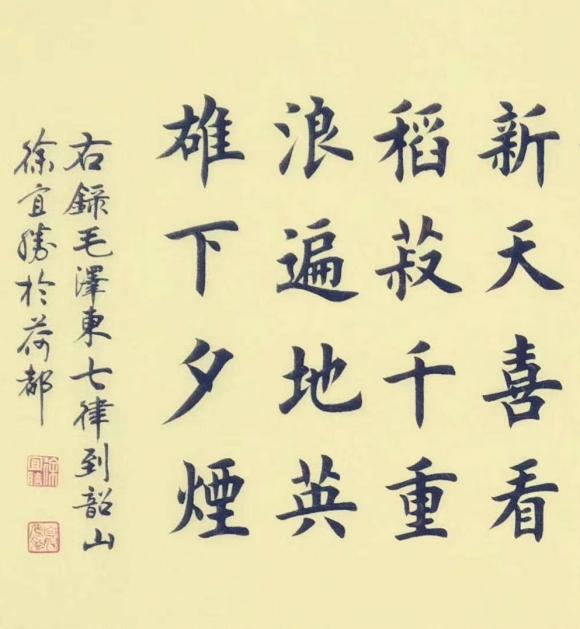 新天喜看
稻菽千重
浪遍地英
雄下夕煙
右錄毛澤東七律到韶山
徐宜勝於荷都